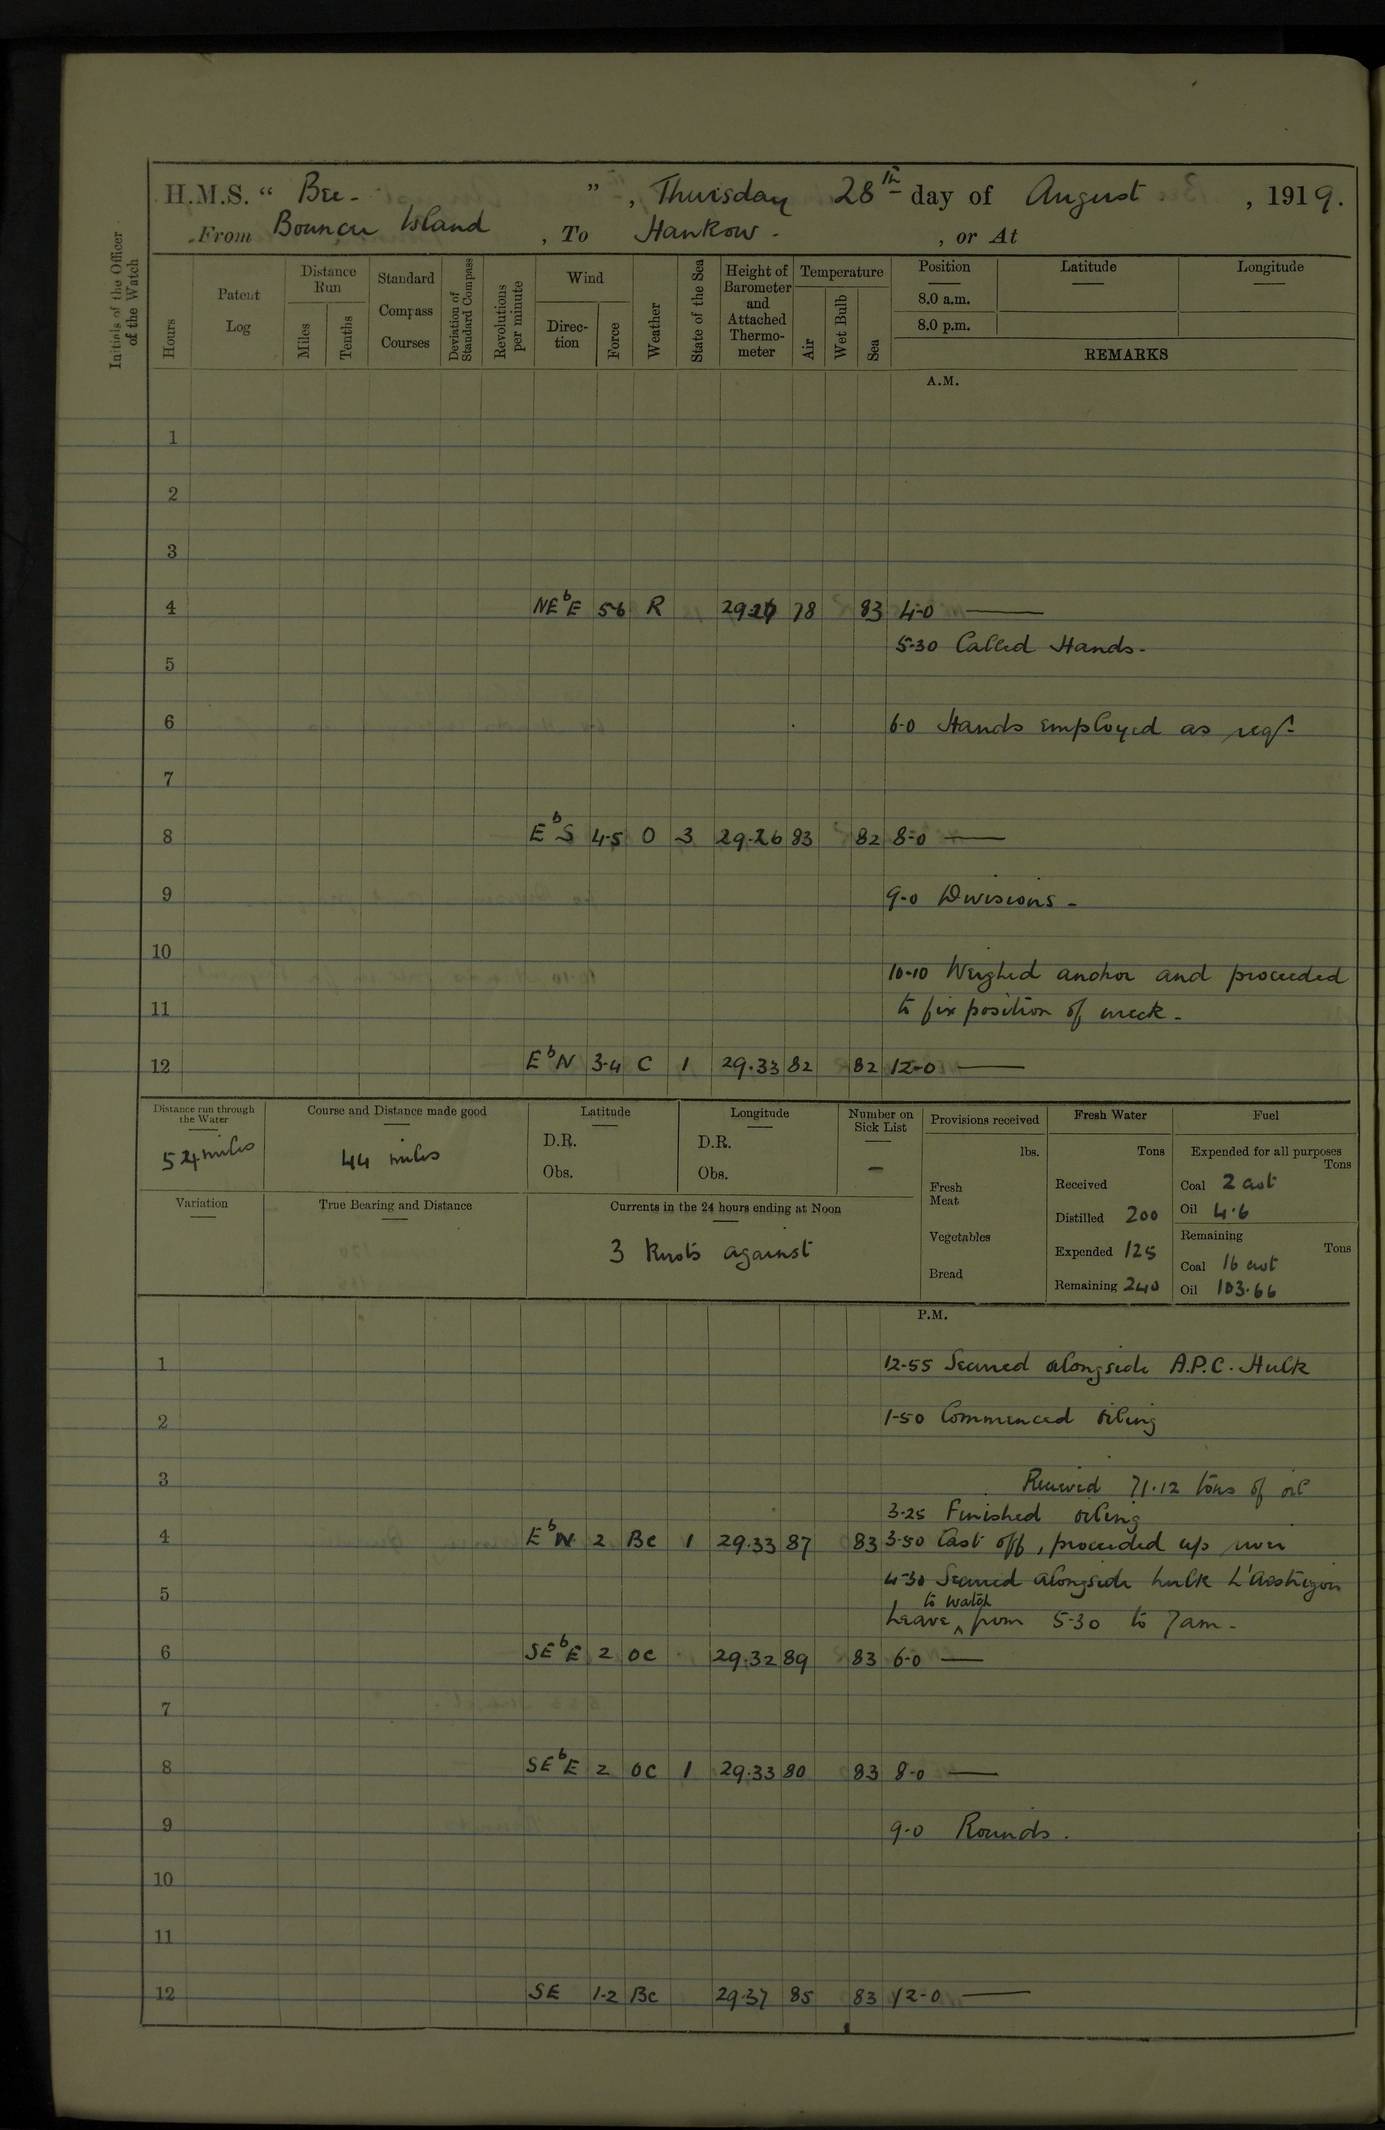 H.M.S. “ Bee - ”, Thursday 28th day of August, 1919.
From Bouncer Island, To Hankow - , or At
Initials of the Officer of the Watch
Hours
Patent Log
Distance Run
Miles
Tenths
Standard Compass Courses
Deviation of Standard Compass
Revolutions per minute
Wind
Direction
Force
Weather
State of the Sea
Height of Barometer and Attached Thermometer
Temperature
Air
Wet Bulb
Sea
Position
8.0 a.m.
8.0 p.m.
Latitude
Longitude
REMARKS
A.M.
1
2
3
4 NEbE 5-6 R 78 83 4-0 ——
5-30 Called Hands -
5
6 6-0 Hands employed as req.
7
8 EbS 4-5 O 3 29.26 83 82 8-0 ——
9 9-0 Divisions -
10
10-10 Weighed anchor and proceeded
11 to fix position of wreck -
12 EbN 3-4 C 1 29.33 82 82 12-0 ——
Distance run through the Water
54 miles
Course and Distance made good
44 miles
Latitude
D.R.
Obs.
Longitude
D.R.
Obs.
Number on Sick List
-
Provisions received
lbs.
Fresh Meat
Vegetables
Bread
Fresh Water
Tons
Received
Distilled 200
Expended 125
Remaining 240
Fuel
Expended for all purposes
Tons
Coal 2 cwt
Oil 4.6
Remaining
Tons
Coal 16 cwt
Oil 103.66
Variation
True Bearing and Distance
Currents in the 24 hours ending at Noon
3 Knots against
P.M.
1 12-55 Secured alongside A.P.C. Hulk
2 1-50 Commenced oiling
3 Received 71.12 tons of oil
3-25 Finished oiling
4 EbN 2 Bc 1 29.33 87 83 3-50 Cast off, proceeded up river
4-30 Secured alongside hulk
5 Leave to watch from 5-30 to 7am -
6 SEbE 2 OC 29.32 89 83 6-0 ——
7
8 SEbE 2 OC 1 29.33 80 83 8-0 ——
9 9-0 Rounds.
10
11
12 SE 1-2 Bc 29.37 85 83 12-0 ——